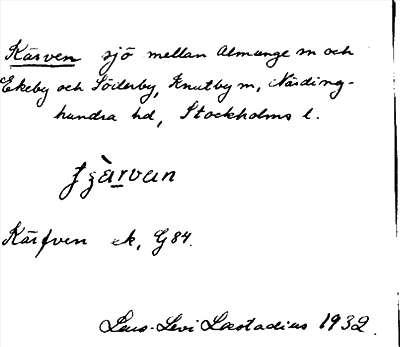 Kärven sjö mellan Almunge sn och
Ekeby och Söderby, Knutby sn, Närding-
hundra hd, Stockholms l.
Kärfven ek, G84.
Lars-Levi Læstadius 1932.